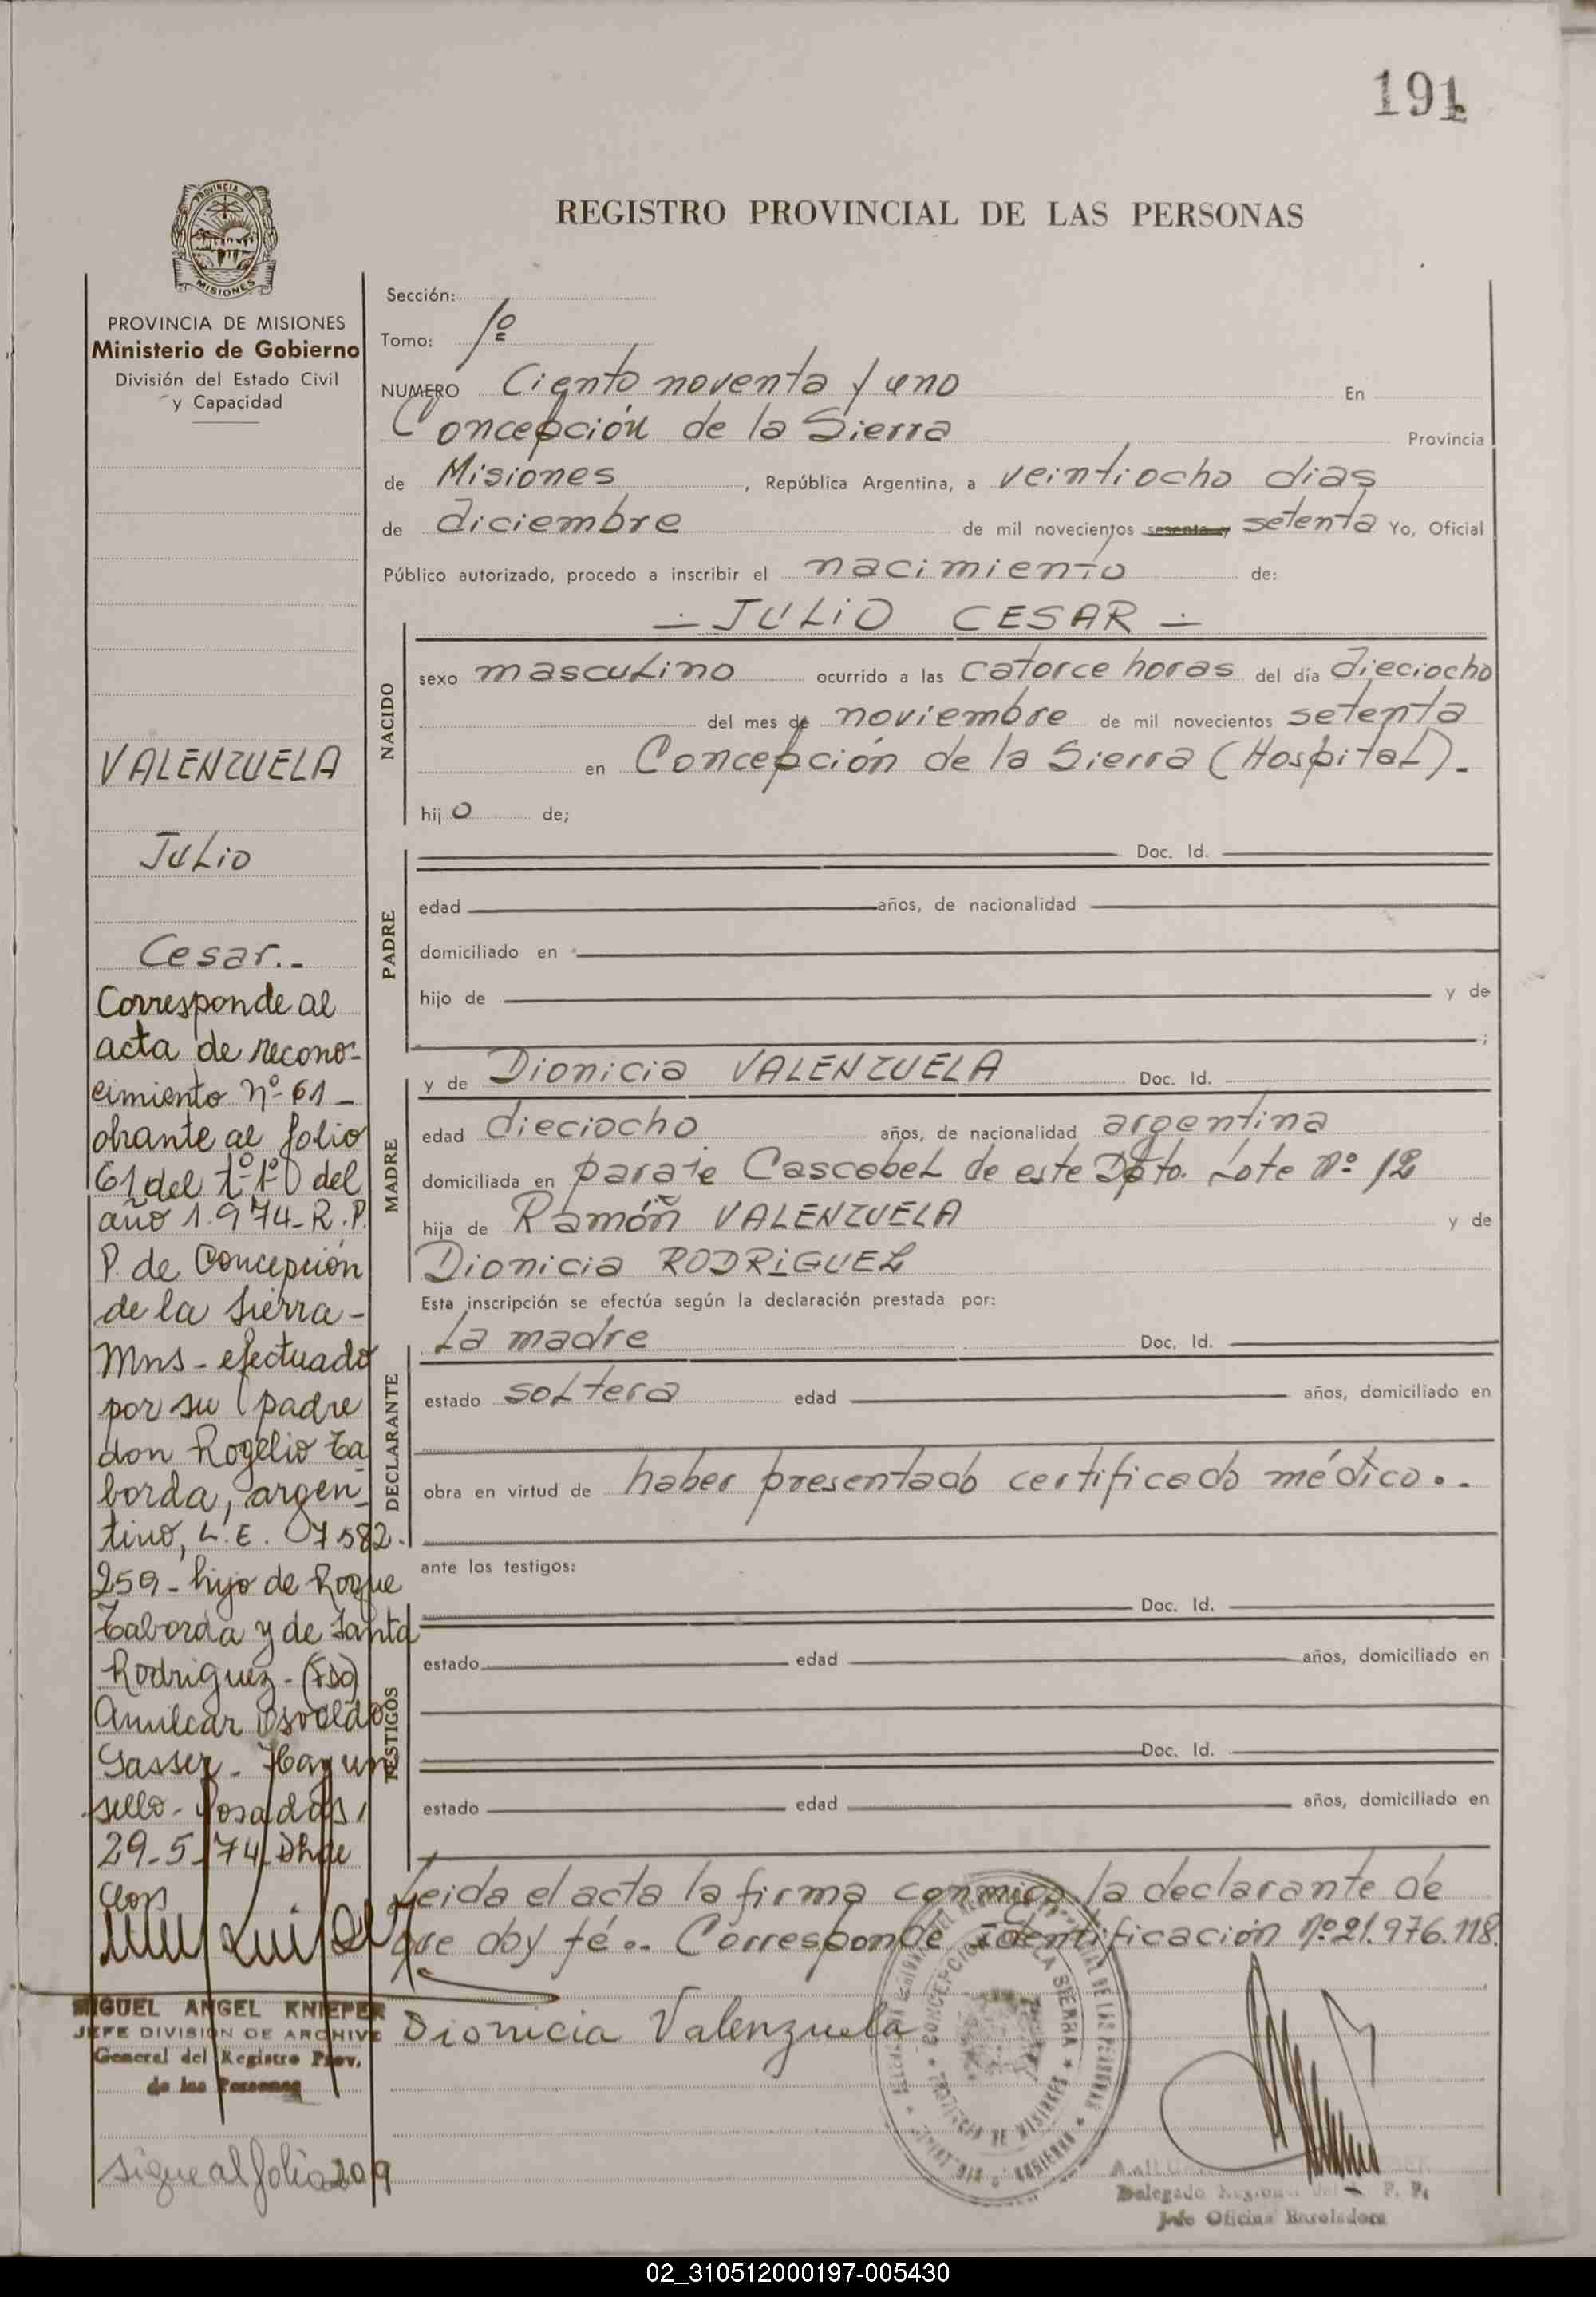 191
PROVINCIA DE
MISIONES
REGISTRO PROVINCIAL DE LAS PERSONAS
PROVINCIA DE MISIONES
Ministerio de Gobierno
División del Estado Civil
y Capacidad
VALENZUELA
Julio
Cesar.-
Corresponde al
acta de recono-
cimiento nº 61-
obrante al folio
61 del tº 1º del
año 1.974-R.P.
P. de Concepción
de la Sierra-
Mns - efectuado
por su padre
don Rogelio Ta
borda, argen-
tino, L.E. 7.582.
259- hijo de Roque
Taborda y de Santa
Rodriguez-(FDO)
Amilcar Osvaldo
Gasser. Hay un
sello- Posadas,
29-5-74
MIGUEL ANGEL KNIEPER
JEFE DIVISION DE ARCHIVO
General del Registro Prov.
de las Personas
sigue al folio 209
Sección:
Tomo: 1º
NUMERO Ciento noventa y uno En
Concepción de la Sierra Provincia
de Misiones, República Argentina, a veintiocho dias
de diciembre de mil novecientos sesenta y setenta Yo, Oficial
Público autorizado, procedo a inscribir el nacimiento de:
JULIO CESAR
NACIDO
sexo masculino ocurrido a las catorce horas del día dieciocho
del mes de noviembre de mil novecientos setenta
en Concepción de la Sierra (Hospital).-
hijo de;
PADRE
Doc. Id.
edad años, de nacionalidad
domiciliado en
hijo de y de
;
MADRE
y de Dionicia VALENZUELA Doc. Id.
edad dieciocho años, de nacionalidad argentina
domiciliada en paraje Cascabel de este Dpto. Lote nº 12
hija de Ramón VALENZUELA y de
Dionicia RODRIGUEZ
Esta inscripción se efectúa según la declaración prestada por:
DECLARANTE
La madre Doc. Id.
estado soltera edad años, domiciliado en
obra en virtud de haber presentado certificado médico.-
ante los testigos:
TESTIGOS
Doc. Id.
estado edad años, domiciliado en
Doc. Id.
estado edad años, domiciliado en
Leida el acta la firma conmigo la declarante de
que doy fé.- Corresponde identificación nº 21.976.118.
Dionicia Valenzuela
CONCEPCION DE LA SIERRA
PROVINCIA DE MISIONES
Delegado
Jefe Oficina
02_310512000197-005430